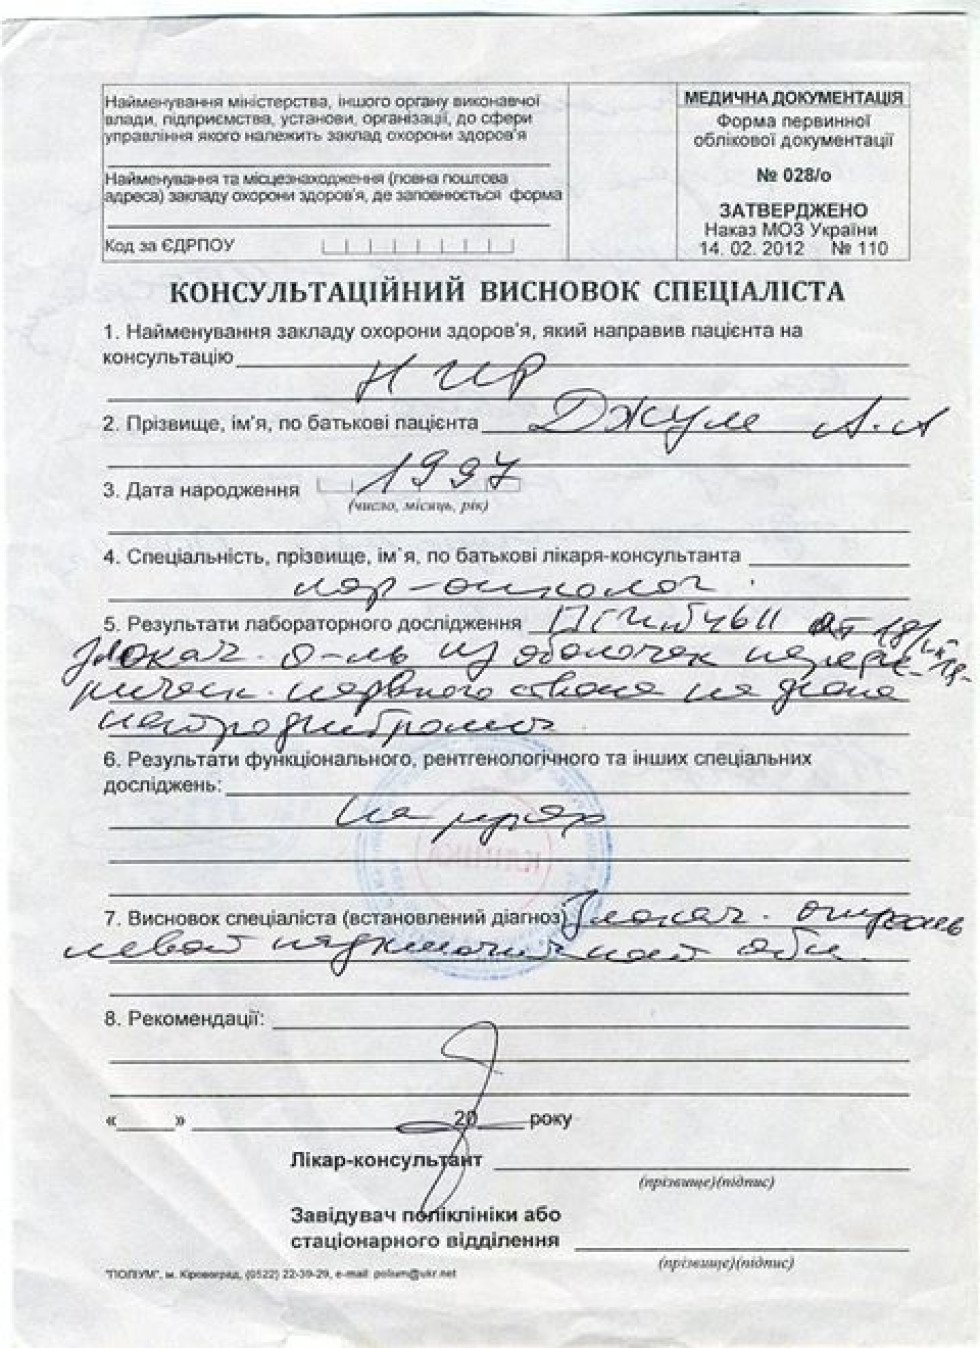 Найменування міністерства, іншого органу виконавчої
влади, підприємства, установи, організації, до сфери
управління якого належить заклад охорони здоров'я
Найменування та місцезнаходження (повна поштова
адреса) закладу охорони здоров'я, де заповнюється форма
Код за ЄДРПОУ
МЕДИЧНА ДОКУМЕНТАЦІЯ
Форма первинної
облікової документації
№ 028/о
ЗАТВЕРДЖЕНО
Наказ МОЗ України
14. 02. 2012 № 110
КОНСУЛЬТАЦІЙНИЙ ВИСНОВОК СПЕЦІАЛІСТА
1. Найменування закладу охорони здоров'я, який направив пацієнта на
консультацію
НИР
2. Прізвище, ім'я, по батькові пацієнта Джуле А.А
3. Дата народження 1997
(число, місяць, рік)
4. Спеціальність, прізвище, ім`я, по батькові лікаря-консультанта
лор-онколог.
5. Результати лабораторного дослідження ПГИ от
Злокач. о-ль из оболочек перефе-
рическ. нервного ствола на фоне
нейрофиброматоз.
6. Результати функціонального, рентгенологічного та інших спеціальних
досліджень:
КЛІНІКА
7. Висновок спеціаліста (встановлений діагноз) Злокач. опухоль
левой надключичной обл.
8. Рекомендації:
« » 20 року
Лікар-консультант
(прізвище)(підпис)
Завідувач поліклініки або
стаціонарного відділення
(прізвище)(підпис)
"ПОЛІУМ", м. Кіровоград, (0522) 22-39-29, e-mail: polium@ukr.net